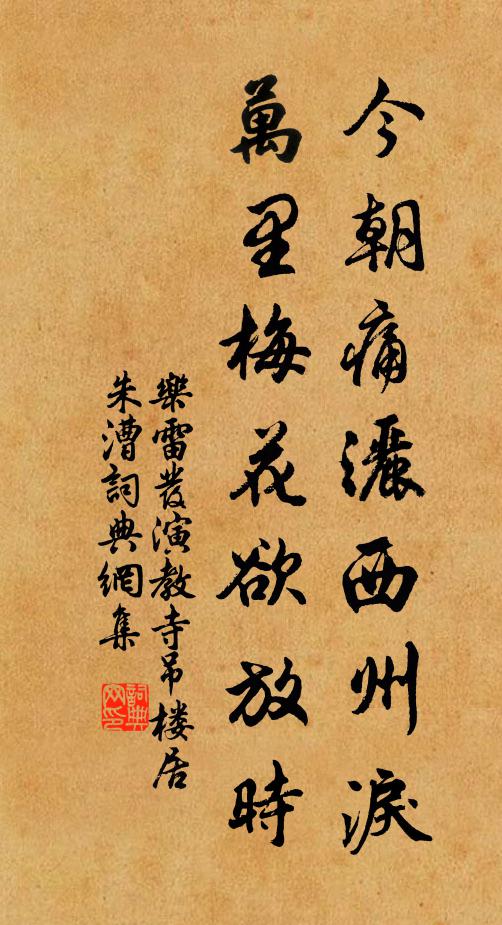 今朝痛灑西州淚
萬里梅花欲放時
樂雷發演教寺吊楼居
朱漕詞典網集
詞典
网印